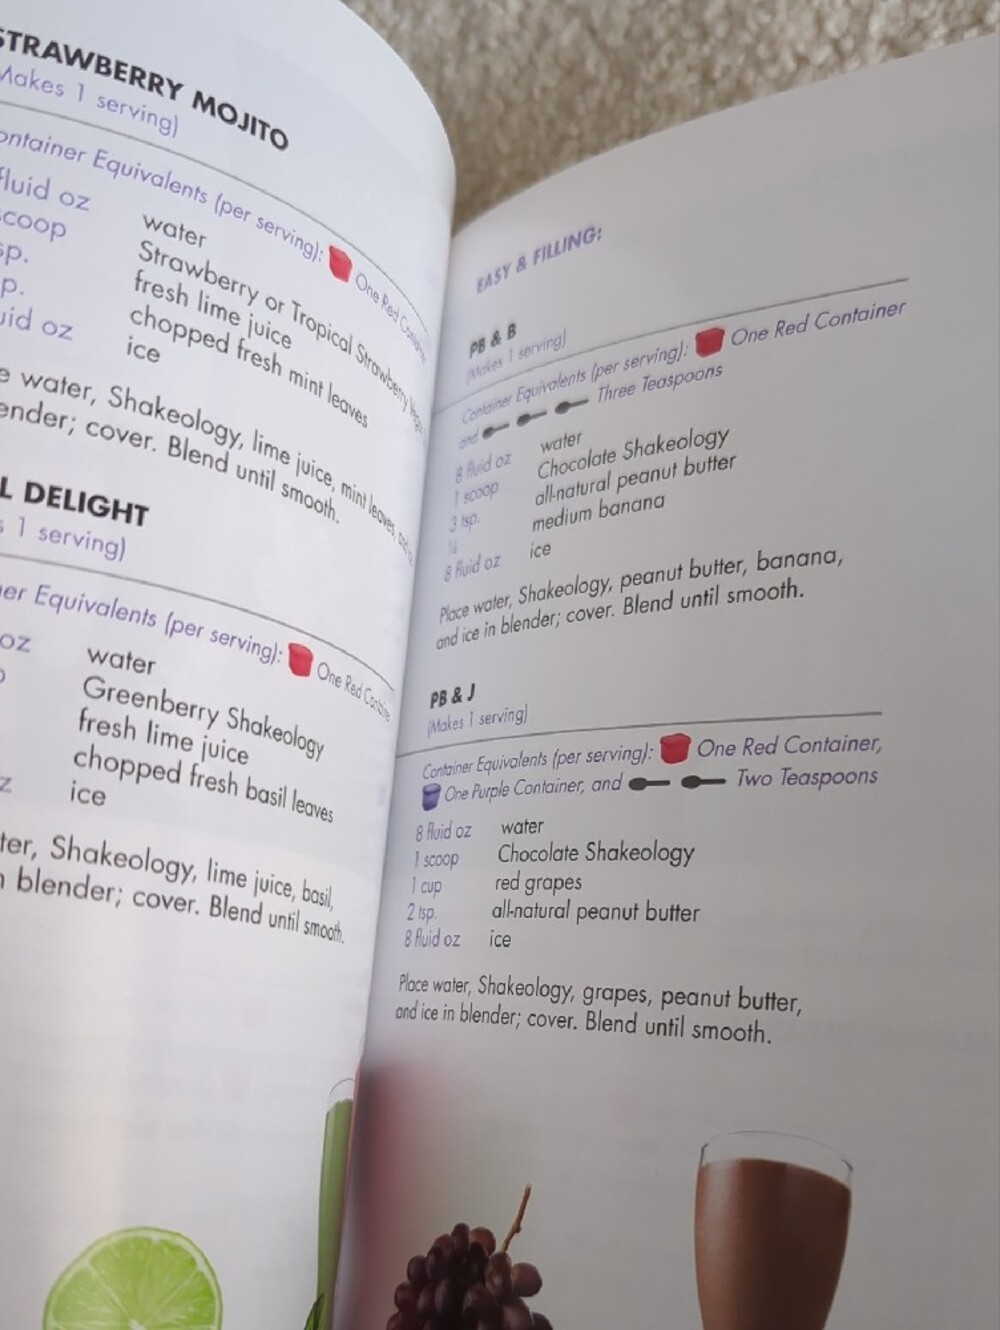 STRAWBERRY MOJITO
Makes 1 serving)
ontainer Equivalents (per serving): One Red
fluid oz water
scoop Strawberry or Tropical Strawberry
sp. fresh lime juice
p. chopped fresh mint leaves
uid oz ice
e water, Shakeology, lime juice, mint leaves,
ender; cover. Blend until smooth.
L DELIGHT
s 1 serving)
er Equivalents (per serving): One Red
oz water
Greenberry Shakeology
fresh lime juice
chopped fresh basil leaves
z ice
ter, Shakeology, lime juice, basil,
n blender; cover. Blend until smooth.
EASY & FILLING:
PB & B
(Makes 1 serving)
Container Equivalents (per serving): One Red Container
and Three Teaspoons
8 fluid oz water
1 scoop Chocolate Shakeology
3 tsp. all-natural peanut butter
medium banana
8 fluid oz ice
Place water, Shakeology, peanut butter, banana,
and ice in blender; cover. Blend until smooth.
PB & J
(Makes 1 serving)
Container Equivalents (per serving): One Red Container,
One Purple Container, and Two Teaspoons
8 fluid oz water
1 scoop Chocolate Shakeology
1 cup red grapes
2 tsp. all-natural peanut butter
8 fluid oz ice
Place water, Shakeology, grapes, peanut butter,
and ice in blender; cover. Blend until smooth.